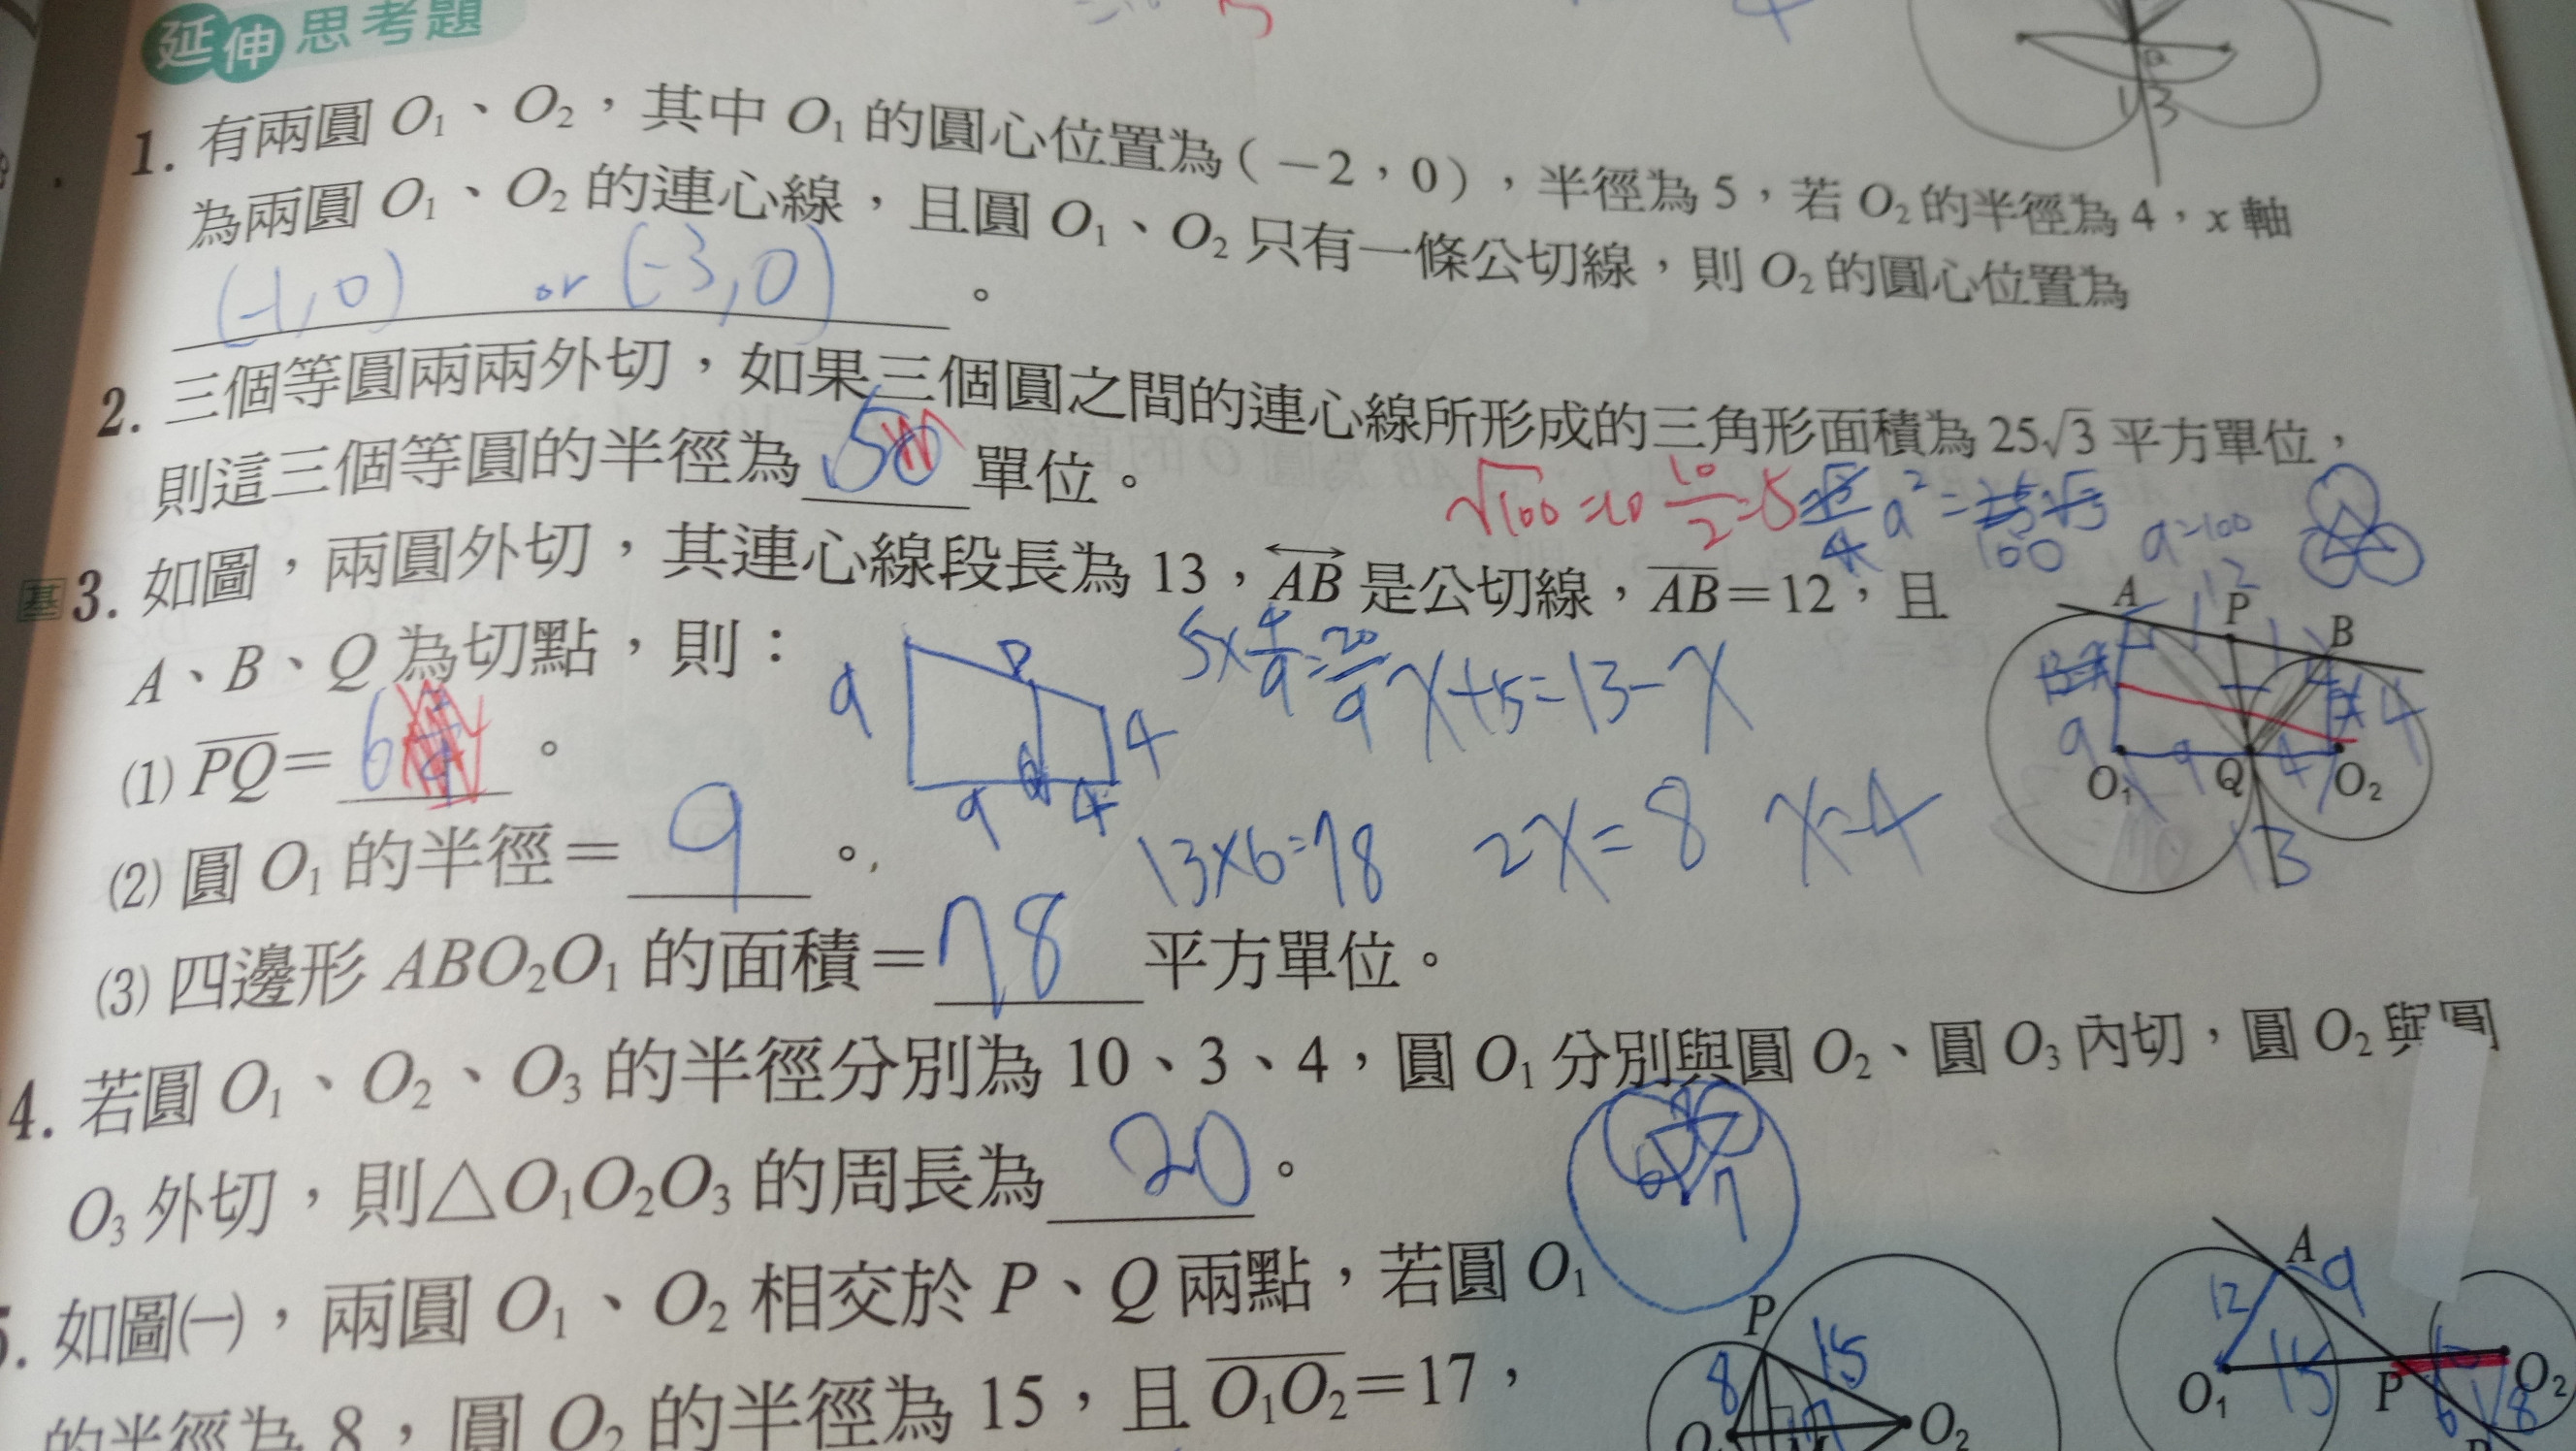 延伸思考題
1. 有兩圓 O₁、O₂，其中 O₁ 的圓心位置為(－2，0)，半徑為 5，若 O₂ 的半徑為 4，x 軸
為兩圓 O₁、O₂ 的連心線，且圓 O₁、O₂ 只有一條公切線，則 O₂ 的圓心位置為
(-1,0) or (-3,0) 。
2. 三個等圓兩兩外切，如果三個圓之間的連心線所形成的三角形面積為 25√3 平方單位，
則這三個等圓的半徑為 5 單位。
√100=10 10/2=5 √3/4 a²=25√3
100 a=100
基 3. 如圖，兩圓外切，其連心線段長為 13，AB 是公切線，AB＝12，且
A、B、Q 為切點，則：
5×4/9=20/9 x+5=13-x
(1) PQ＝ 6 。
(2) 圓 O₁ 的半徑＝ 9 。
13×6=78 2x=8 x=4
(3) 四邊形 ABO₂O₁ 的面積＝78 平方單位。
9 P 4 Q 9 4
A 12 P B 9 4 O₁ 9 Q 4 O₂ 13
4. 若圓 O₁、O₂、O₃ 的半徑分別為 10、3、4，圓 O₁ 分別與圓 O₂、圓 O₃ 內切，圓 O₂ 與圓
O₃ 外切，則△O₁O₂O₃ 的周長為 20 。
7 6 7
5. 如圖㈠，兩圓 O₁、O₂ 相交於 P、Q 兩點，若圓 O₁
的半徑為 8，圓 O₂ 的半徑為 15，且 O₁O₂＝17，
P 8 15 17 O₂
A 12 9 15 O₁ P 6 8 O₂